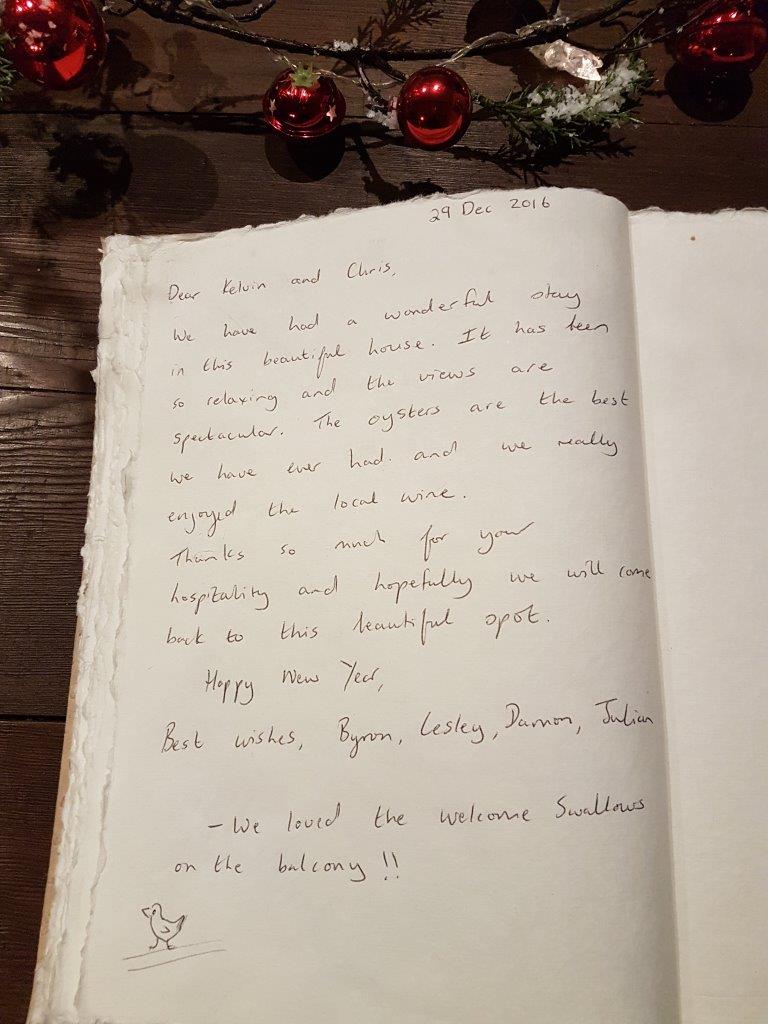 29 Dec 2016
Dear Kelvin and Chris,
We have had a wonderful stay
in this beautiful house. It has been
so relaxing and the views are
spectacular. The oysters are the best
we have ever had. and we really
enjoyed the local wine.
Thanks so much for your
hospitality and hopefully we will come
back to this beautiful spot.
Happy New Year,
Best wishes, Byron, Lesley, Damon, Julian
- We loved the welcome Swallows
on the balcony !!